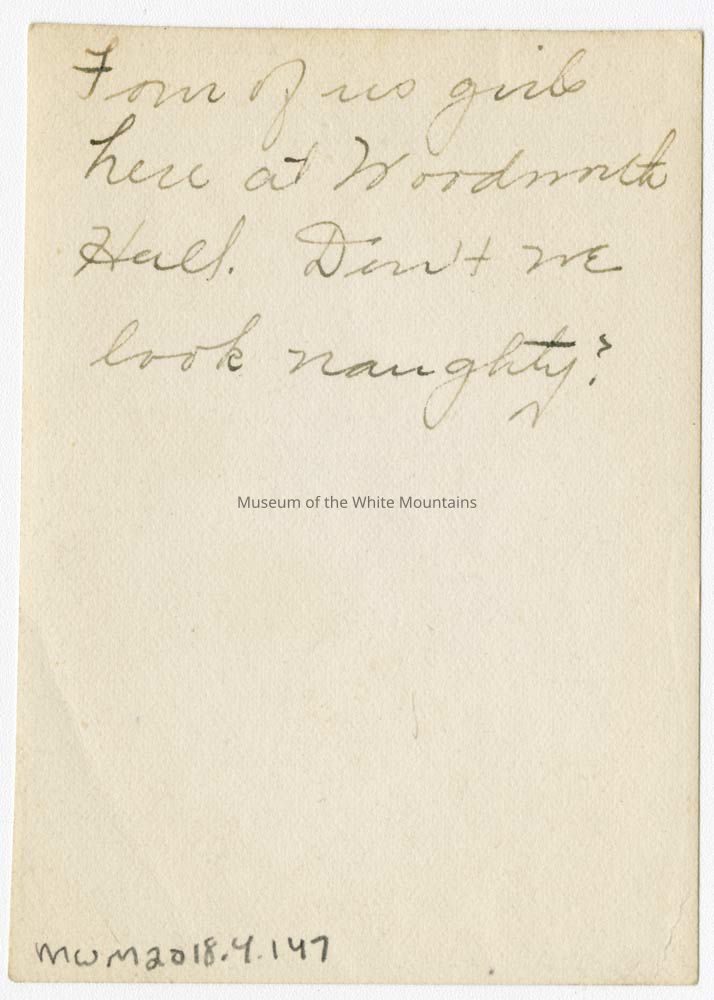 Four of us girls
here at Woodworth
Hall. Don't we
look naughty?
Museum of the White Mountains
MWM2018.4.147